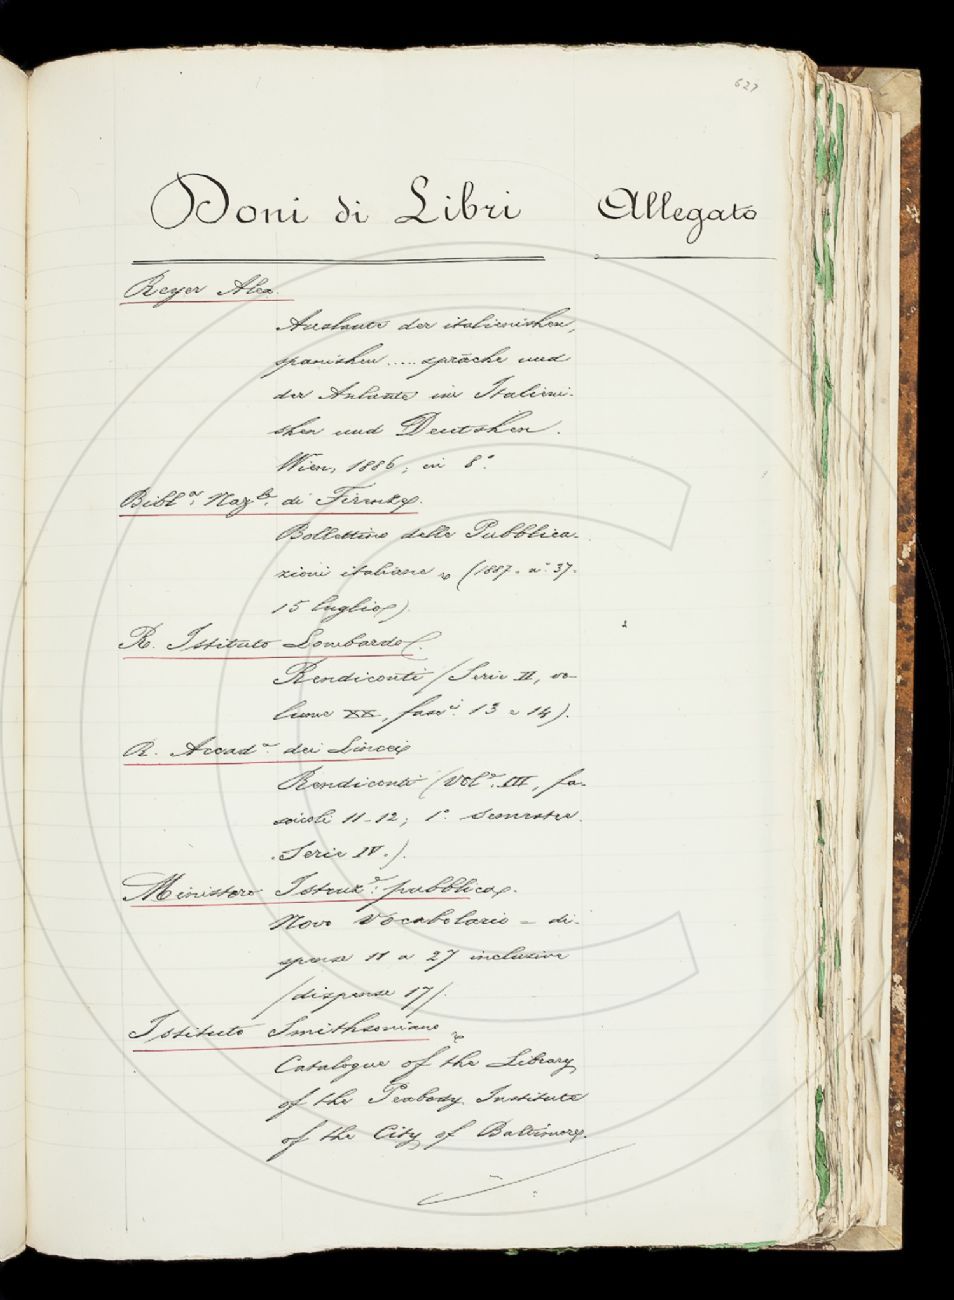 627
Doni di Libri Allegato
Reyer Alex.
Auslaute der italienishen,
spanishen .... sprache und
der Anlaute im Italieni-
shen und Deutshen.
Wien, 1886, in 8°.
Bibl.ca Naz.le di Firenze.
Bollettino delle Pubblica-
zioni italiane (1887. n.° 37.
15 luglio).
R. Istituto Lombardo.
Rendiconti (Serie II, vo-
lume XX, fasc.i 13 e 14).
R. Accad.a dei Lincei
Rendiconti (Vol.e III, fa-
scicoli 11-12; 1° semestre.
Serie IV.).
Ministero Istruz.e pubblica.
Novo Vocabolario - di-
spense 11 a 27 inclusive
(dispense 17).
Istituto Smithsoniano
Catalogue of the Library
of the Peabody Institute
of the City of Baltimore.